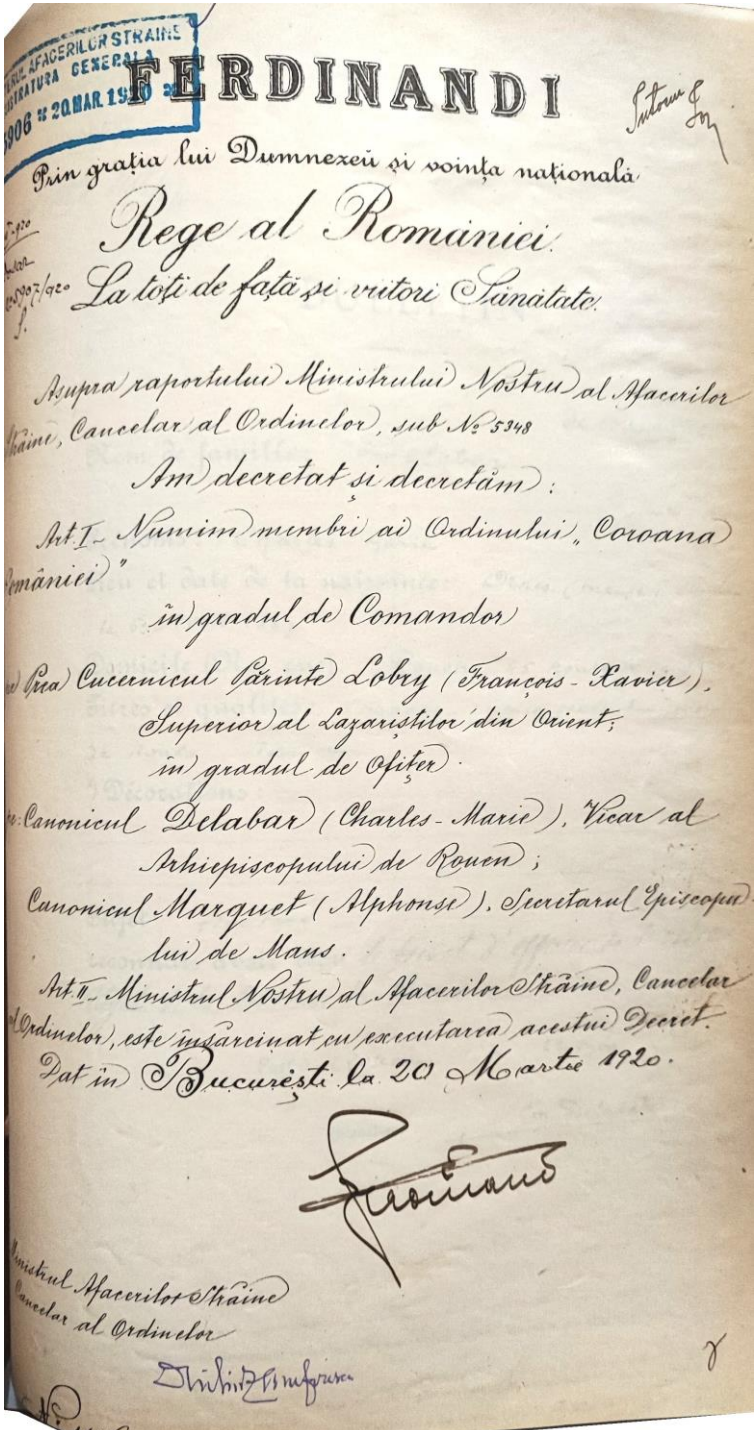 AFACERILOR STRAINE
GENERALA
906 * 20 MAR. 1920 *
FERDINAND I
Prin grația lui Dumnezeŭ și voința națională
Rege al României.
La toți de față și viitori Sănătate.
5907/920
Asupra raportului Ministrului Nostru al Afacerilor
Străine, Cancelar al Ordinelor, sub № 5348
Am decretat și decretăm:
Art. I_ Numim membri ai Ordinului „Coroana
României"
în gradul de Comandor
Prea Cucernicul Părinte Lobry (François-Xavier),
Superior al Lazariștilor din Orient;
în gradul de Ofițer.
Canonicul Delabar (Charles-Marie), Vicar al
Arhiepiscopului de Rouen;
Canonicul Marquet (Alphonse), Secretarul Episcopu-
lui de Mans.
Art. II_ Ministrul Nostru al Afacerilor Străine, Cancelar
al Ordinelor, este însărcinat cu executarea acestui Decret.
Dat în București la 20 Martie 1920.
Ferdinand
Ministrul Afacerilor Străine
Cancelar al Ordinelor
№